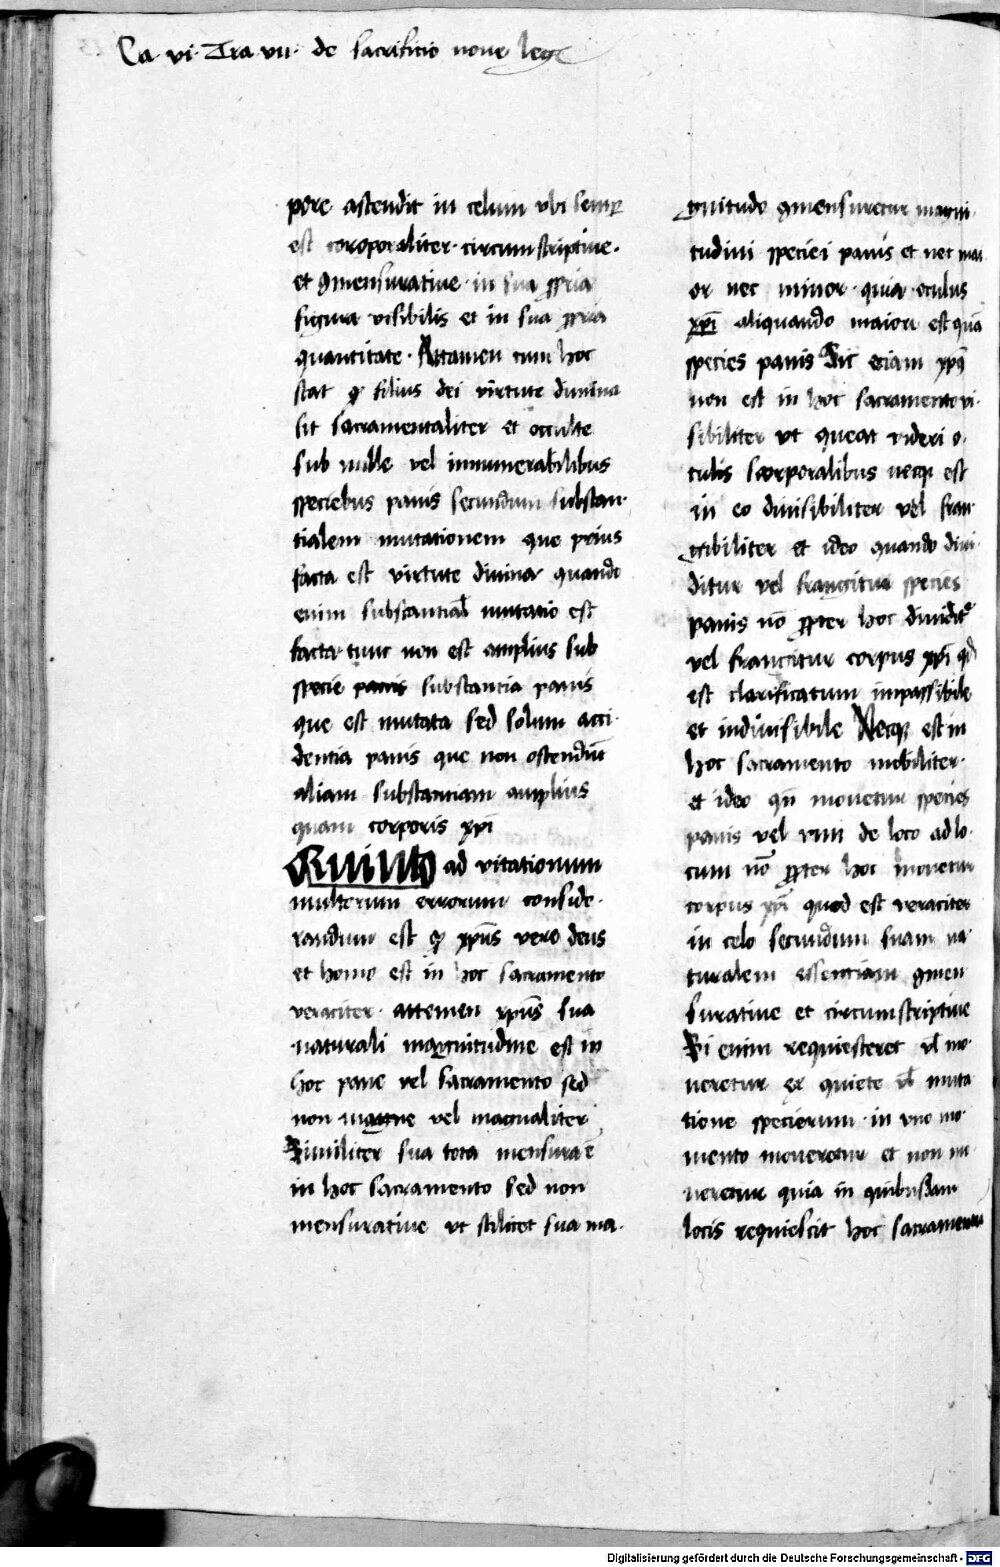 Ca vi Tra vii de sacrificio noue lege
pore astendit in celum vbi semꝑ
est coroporaliter circumscriptiue
et ꝯmensuratiue in sua ꝓpria
figura visibilis et in sua ꝓpria
quantitate Attamen cum hoc
stat ꝙ filius dei virtute diuina
sit sacramentaliter et occulte
sub mille vel innumerabilibus
speciebus panis secundum substan
tialem mutationem que prius
facta est virtute diuina quando
enim substantial mutatio est
facta tunc non est amplius sub
specie panis substantia panis
que est mutata sed solum acci
dentia panis que non ostendūt
aliam substantiam amplius
quam corporis xp̄i
Quinto ad vitationum
multorum errorum conside
randum est ꝙ xp̄us vere deus
et homo est in hoc sacramento
veraciter attemen xp̄us sua
naturali magnitudine est in
hoc pane vel sacramento sed
non magne vel magnaliter
Similiter sua tota mensura ē
in hoc sacramento sed non
mensuratiue vt scilicet sua ma
gnitudo ꝯmensuretur magni
tudini speciei panis et nec mai
or nec minor quia oculus
xp̄i aliquando maiori est quā
species panis Sic eciam xp̄s
non est in hoc sacramento vi
sibiliter vt queat videri o
culis corporalibus necꝫ est
in eo diuisibiliter vel fran
gibiliter et ideo quando diui
ditur vel frangitur species
panis nō ꝓpter hoc diuidit᷑
vel frangitur corpus xp̄i qd
est clarificatum impassibile
et indiuisibile Necꝫ est in
hoc sacramento mobiliter
et ideo qn̄ mouetur species
panis vel vini de loco ad lo
cum nō ꝓpter hoc mouetur
corpus xp̄i quod est veraciter
in celo secundum suam na
turalem essentiam ꝯmen
suratiue et circumscriptiue
Si enim requiesteret vl̄ mo
ueretur ex quiete vl̄ muta
tione specierum in vno mo
mento moueretur et non mo
ueretur quia in quibusdam
locis requiescit hoc sacramentum
Digitalisierung gefördert durch die Deutsche Forschungsgemeinschaft - DFG